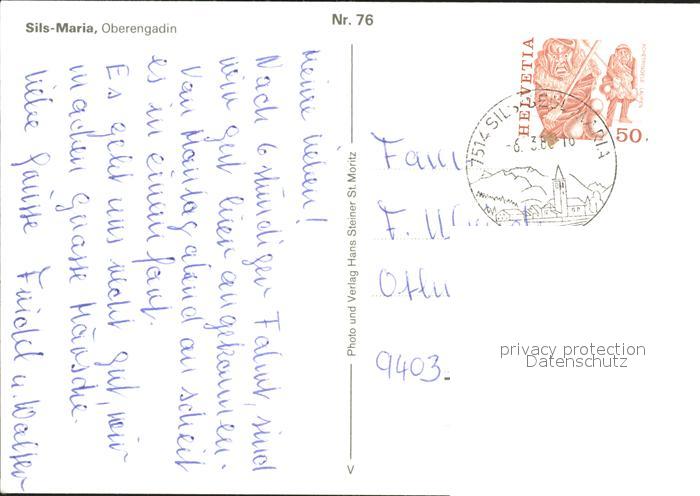 Sils-Maria, Oberengadin
Nr. 76
Meine Lieben!
Nach 6 stündiger Fahrt, sind
wir gut hier angekommen.
Von Montag abend an scheit
es in einem fort.
Es geht uns recht gut, wir
machen Gnasse Mänsche.
Liebe Grüsse Friedel u. Walter
Photo und Verlag Hans Steiner St. Moritz
V
HELVETIA
50
7514 SILS
-6. 3.8
Fam
F. W
9403
privacy protection
Datenschutz